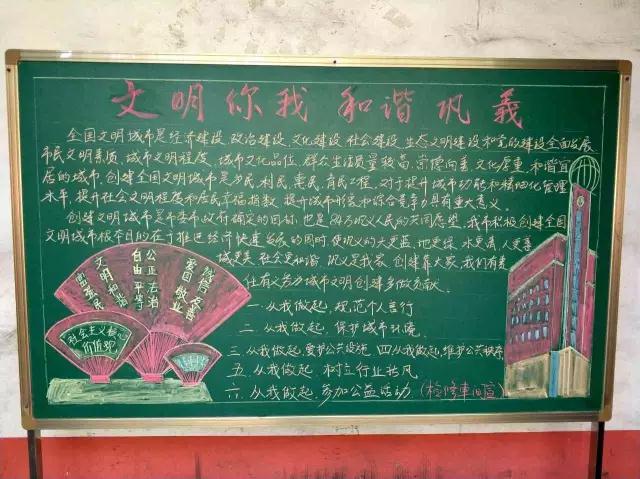 文明你我 和谐巩義
全国文明城市是经济建设,政治建设,文化建设,社会建设,生态文明建设和党的建设全面发展
市民文明素质,城市文明程度,城市文化品位,群众生活质量较高,崇德向善,文化厚重,和谐宜
居的城市。创建全国文明城市是为民,利民,惠民,育民工程。对于提升城市功能和精细化管理
水平,提升社会文明程度和居民幸福指数,提升城市形象和综合竞争力具有重大意义。
创建文明城市是市委市政府确定的目标,也是84万巩义人民的共同愿望,我市积极创建全国
文明城市根本目的在于推进经济快速发展的同时,使巩义的天更蓝,地更绿,水更清,人更善
城更美,社会更和谐,巩义是我家,创建靠大家,我们有责
任有义务为城市文明创建多做贡献。
一.从我做起,规范个人言行
二.从我做起,保护城市环境
三.从我做起,爱护公共设施 四.从我做起,维护公共秩序
五.从我做起,树立行业新风
六.从我做起,参加公益活动 (检修車间宣)
富强民主
文明和谐
自由平等
公正法治
爱国敬业
诚信友善
社会主义核心
价值观